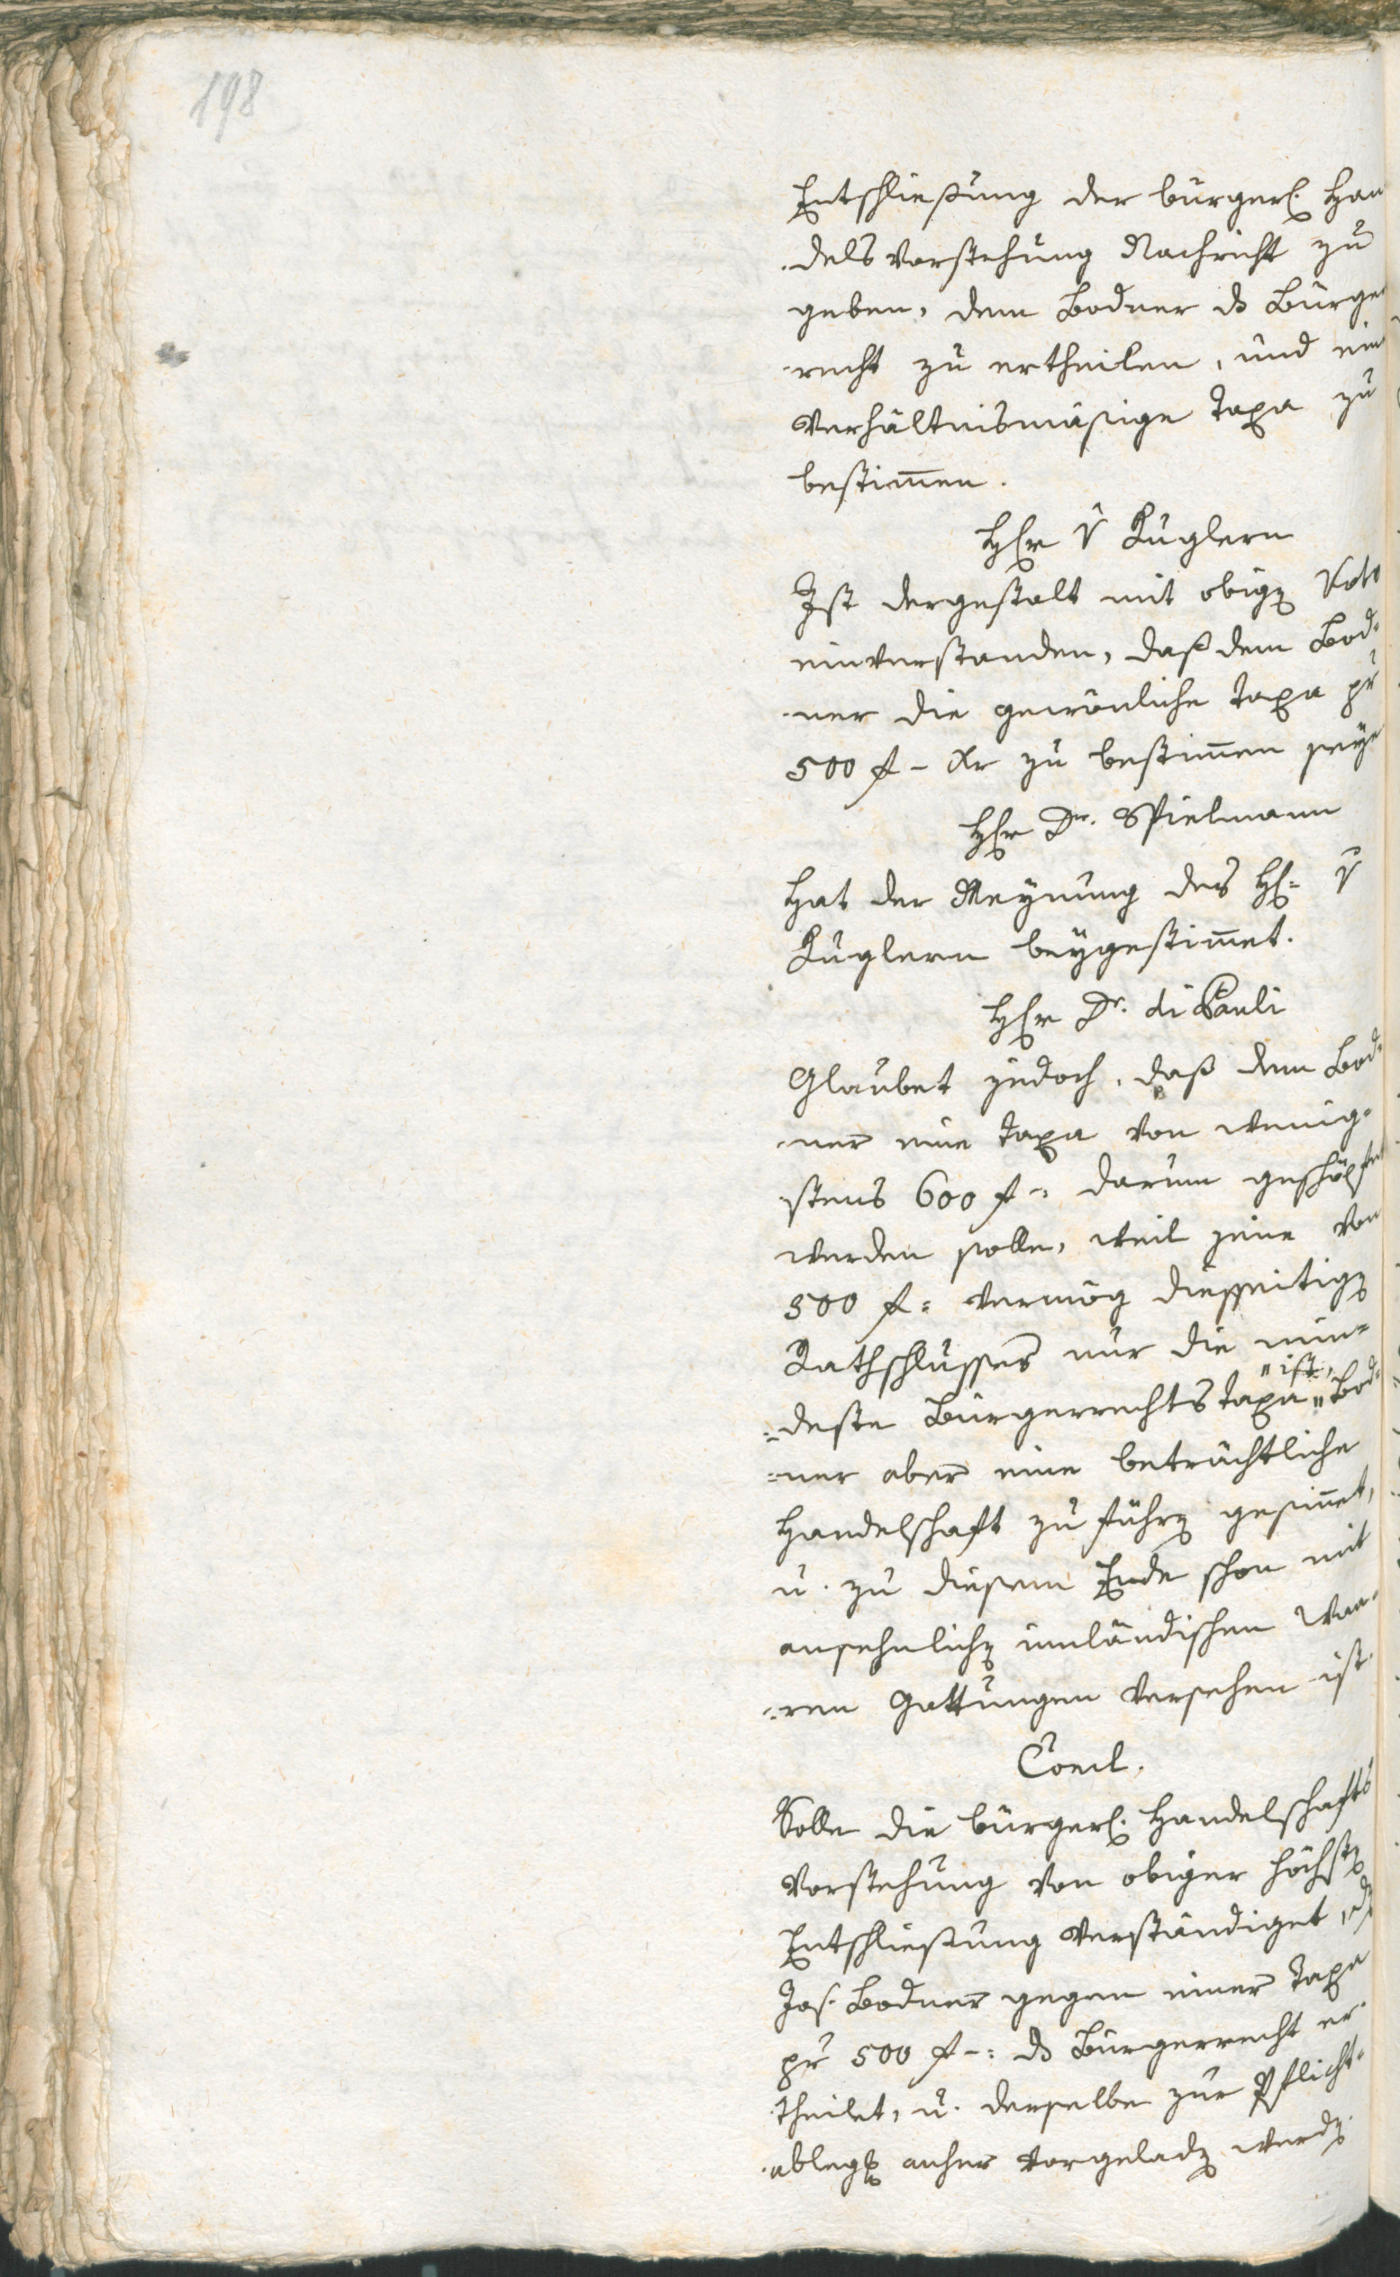 198
Entschließung der bürgerl. Han
dels Vorstehung Nachricht zu
geben, dem Bodner ds Bürger
recht zu ertheilen, und eine
Verhältnismäsige Taxa zu
bestim̅en.
Hhr v Kuglern
Ist dergestalt mit obigen Voto
einverstanden, daß dem Bod-
ner die gewönliche Taxa pr
500 f - xr zu bestim̅en seye
Hhr Dr. Spielmann
Hat der Meynung des Hh: v
Kuglern beygestim̅et.
Hhr Dr. di Pauli
Glaubet jedoch, daß dem Bod-
ner eine Taxa von wenig-
stens 600 f : darum geschöpfet
werden solle, weil jene von
500 f : vermög diesseitigen
Rathschlusses nur die min-
"ist,
=deste Bürgerrechtstaxa " Bod-
=ner aber eine beträchtliche
Handelschaft zu führen gesin̅et,
u. zu diesem Ende schon mit
ansehnlichen innländischen Waa-
=ren Gattungen versehen ist.
Concl.
Solle die bürgerl. Handelschafts
Vorstehung von obiger höchsten
Entschließung verständiget,
Jos. Bodner gegen einer Taxa
pr 500 f -: ds Bürgerrecht er-
theilet, u. derselbe zur Pflicht-
ablegung anher vorgeladen werden.